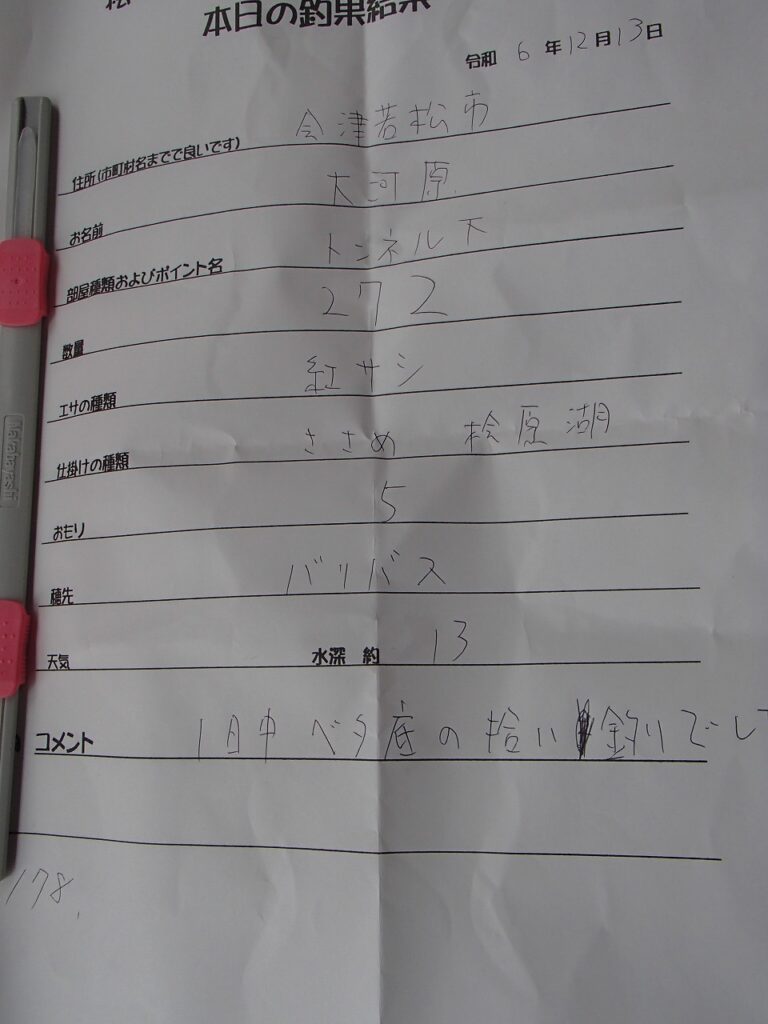 松
本日の釣果結果
令和 6 年 12 月 13 日
住所(市町村名までで良いです) 会津若松市
お名前 大河原
部屋種類およびポイント名 トンネル下
数量 272
エサの種類 紅サシ
仕掛けの種類 ささめ 桧原湖
おもり 5
穂先 バリバス
天気 水深 約 13
コメント 1日中ベタ底の拾い釣りでし
178